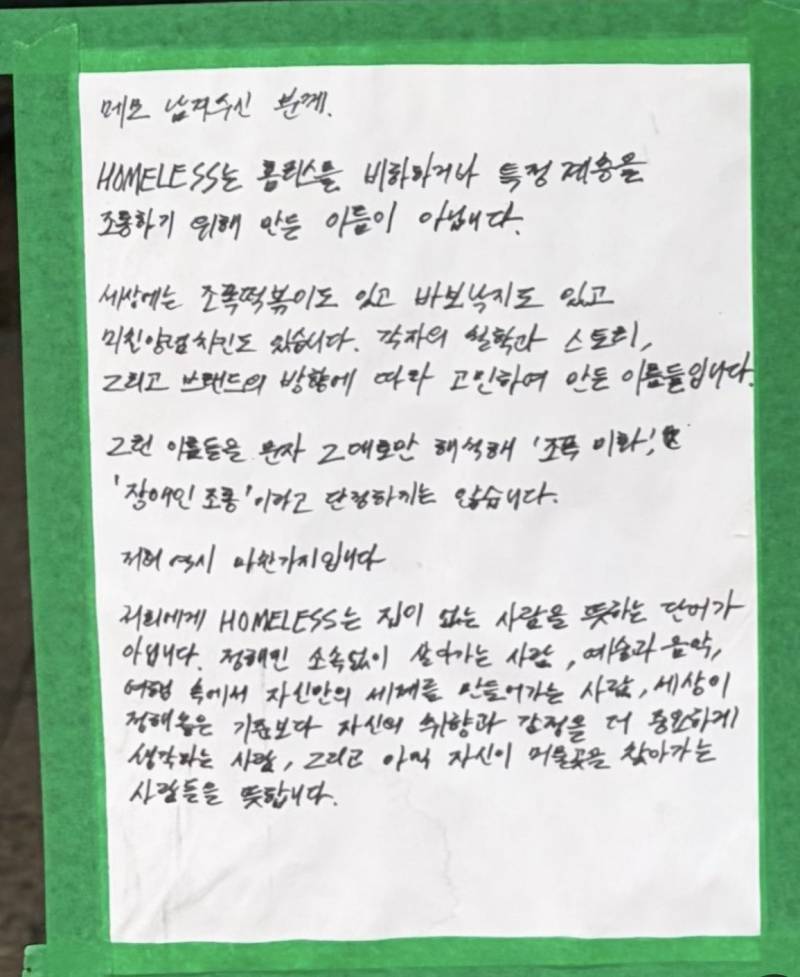 메모 남겨주신 분께.
HOMELESS는 홈리스를 비하하거나 특정 계층을
조롱하기 위해 만든 이름이 아닙니다.
세상에는 조폭떡볶이도 있고 바보낙지도 있고
미친양념치킨도 있습니다. 각자의 철학과 스토리,
그리고 브랜드의 방향에 따라 고민하여 만든 이름들입니다.
그런 이름들을 문자 그대로만 해석해 '조폭 미화',
'장애인 조롱'이라고 단정하지는 않습니다.
저희 역시 마찬가지입니다
저희에게 HOMELESS는 집이 없는 사람을 뜻하는 단어가
아닙니다. 정해진 소속없이 살아가는 사람, 예술과 음악,
여행 속에서 자신만의 세계를 만들어가는 사람, 세상이
정해놓은 기준보다 자신의 취향과 감정을 더 중요하게
생각하는 사람, 그리고 아직 자신이 머물곳을 찾아가는
사람들을 뜻합니다.